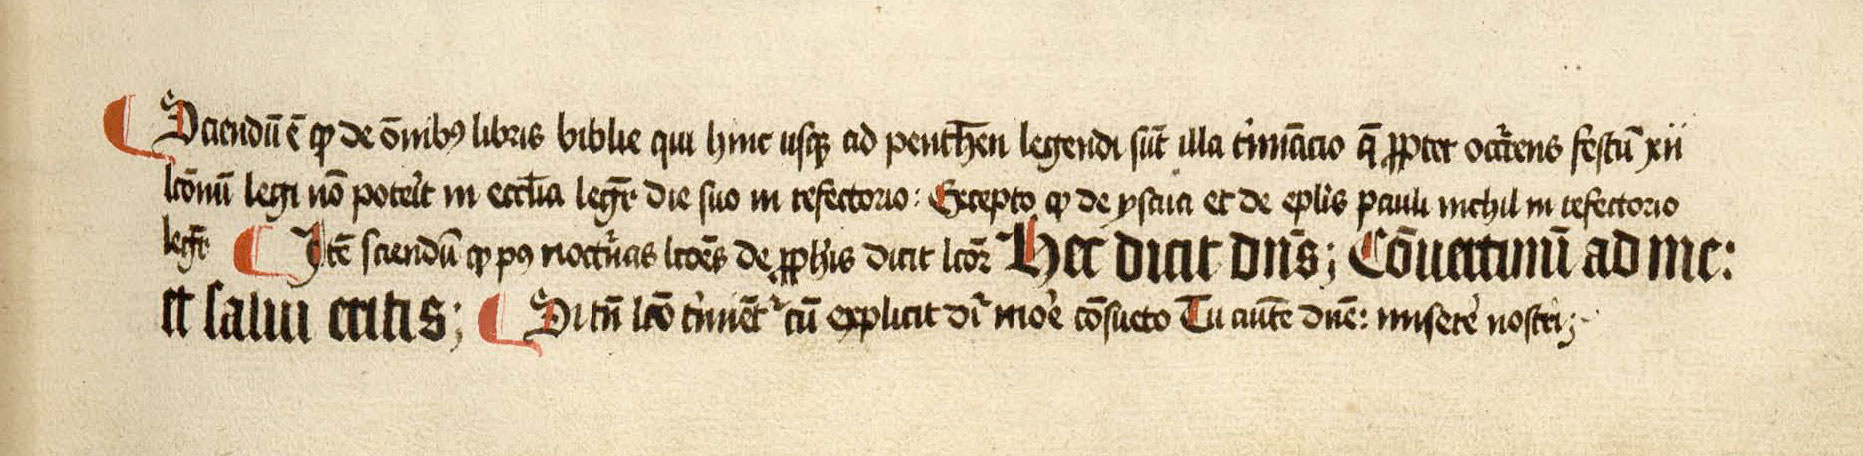 ¶ Sciendū ē ꝙ de om̄ibꝯ libris biblie qui hinc usqꝫ ad pentheꝯn legendi sūt illa t̓minacio q̄ ꝓpter occ̓rens festū xii
lcōnū legi nō potẽit in eccłia leget̄ die suo in refectorio: Excepto ꝙ de ysaia et de epłis pauli nichil in refectorio
leget̄ ¶ Itē sciendū ꝙ pꝯ noct̓nas lcōes de ꝓphīs dicit lcōr Hec dicit dn̄s; Cōuertimī ad me:
et salui eritis; ¶ Si tn̄ lcō t̓minet̄ᷣ cū explicit dr̄ more cōsueto Tu autē dn̄e: miserẽ nostri;